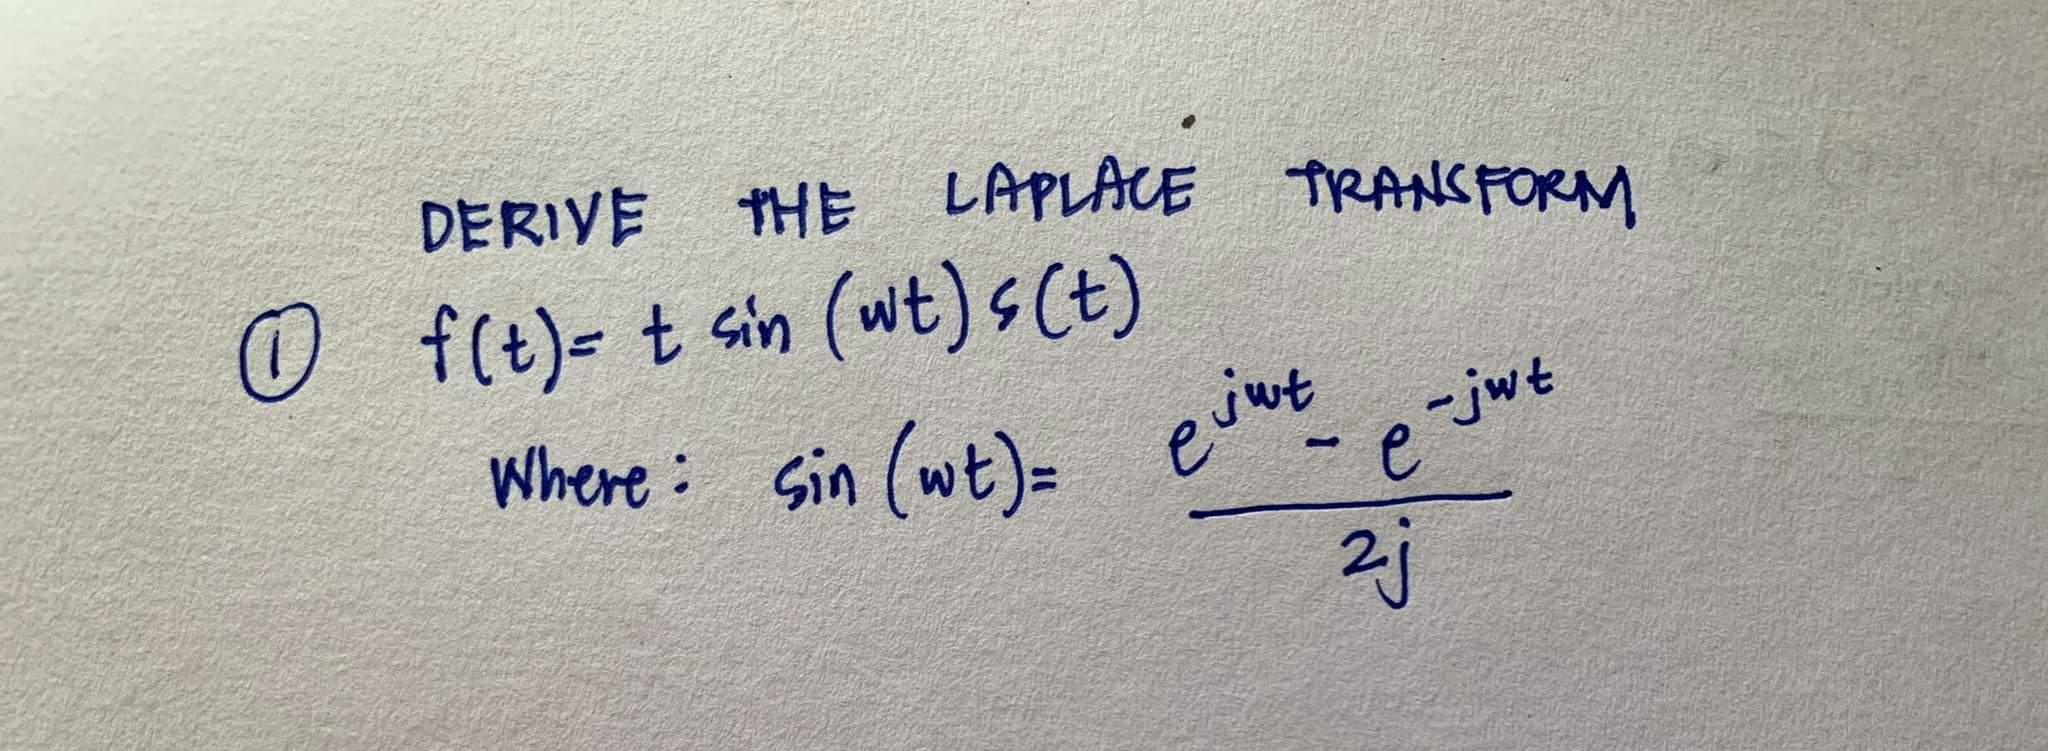 DERIVE THE LAPLACE TRANSFORM
① f(t)= t sin (wt) s(t)
Where: sin (wt)= e^jwt - e^-jwt
2j